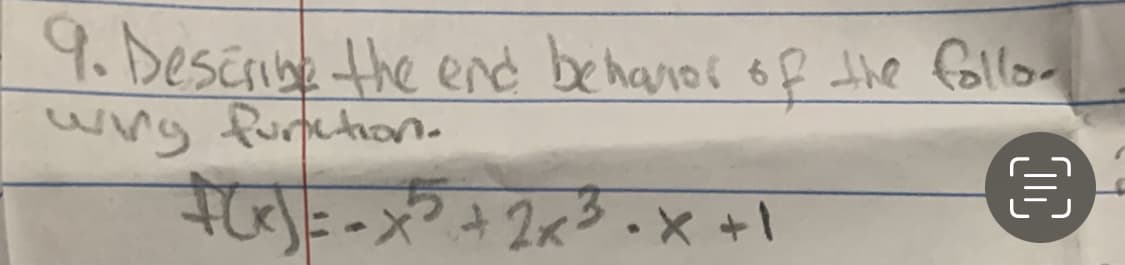 9. Describe the end behavior of the follo-
wing function.
f(x) = -x⁵ + 2x³ - x + 1